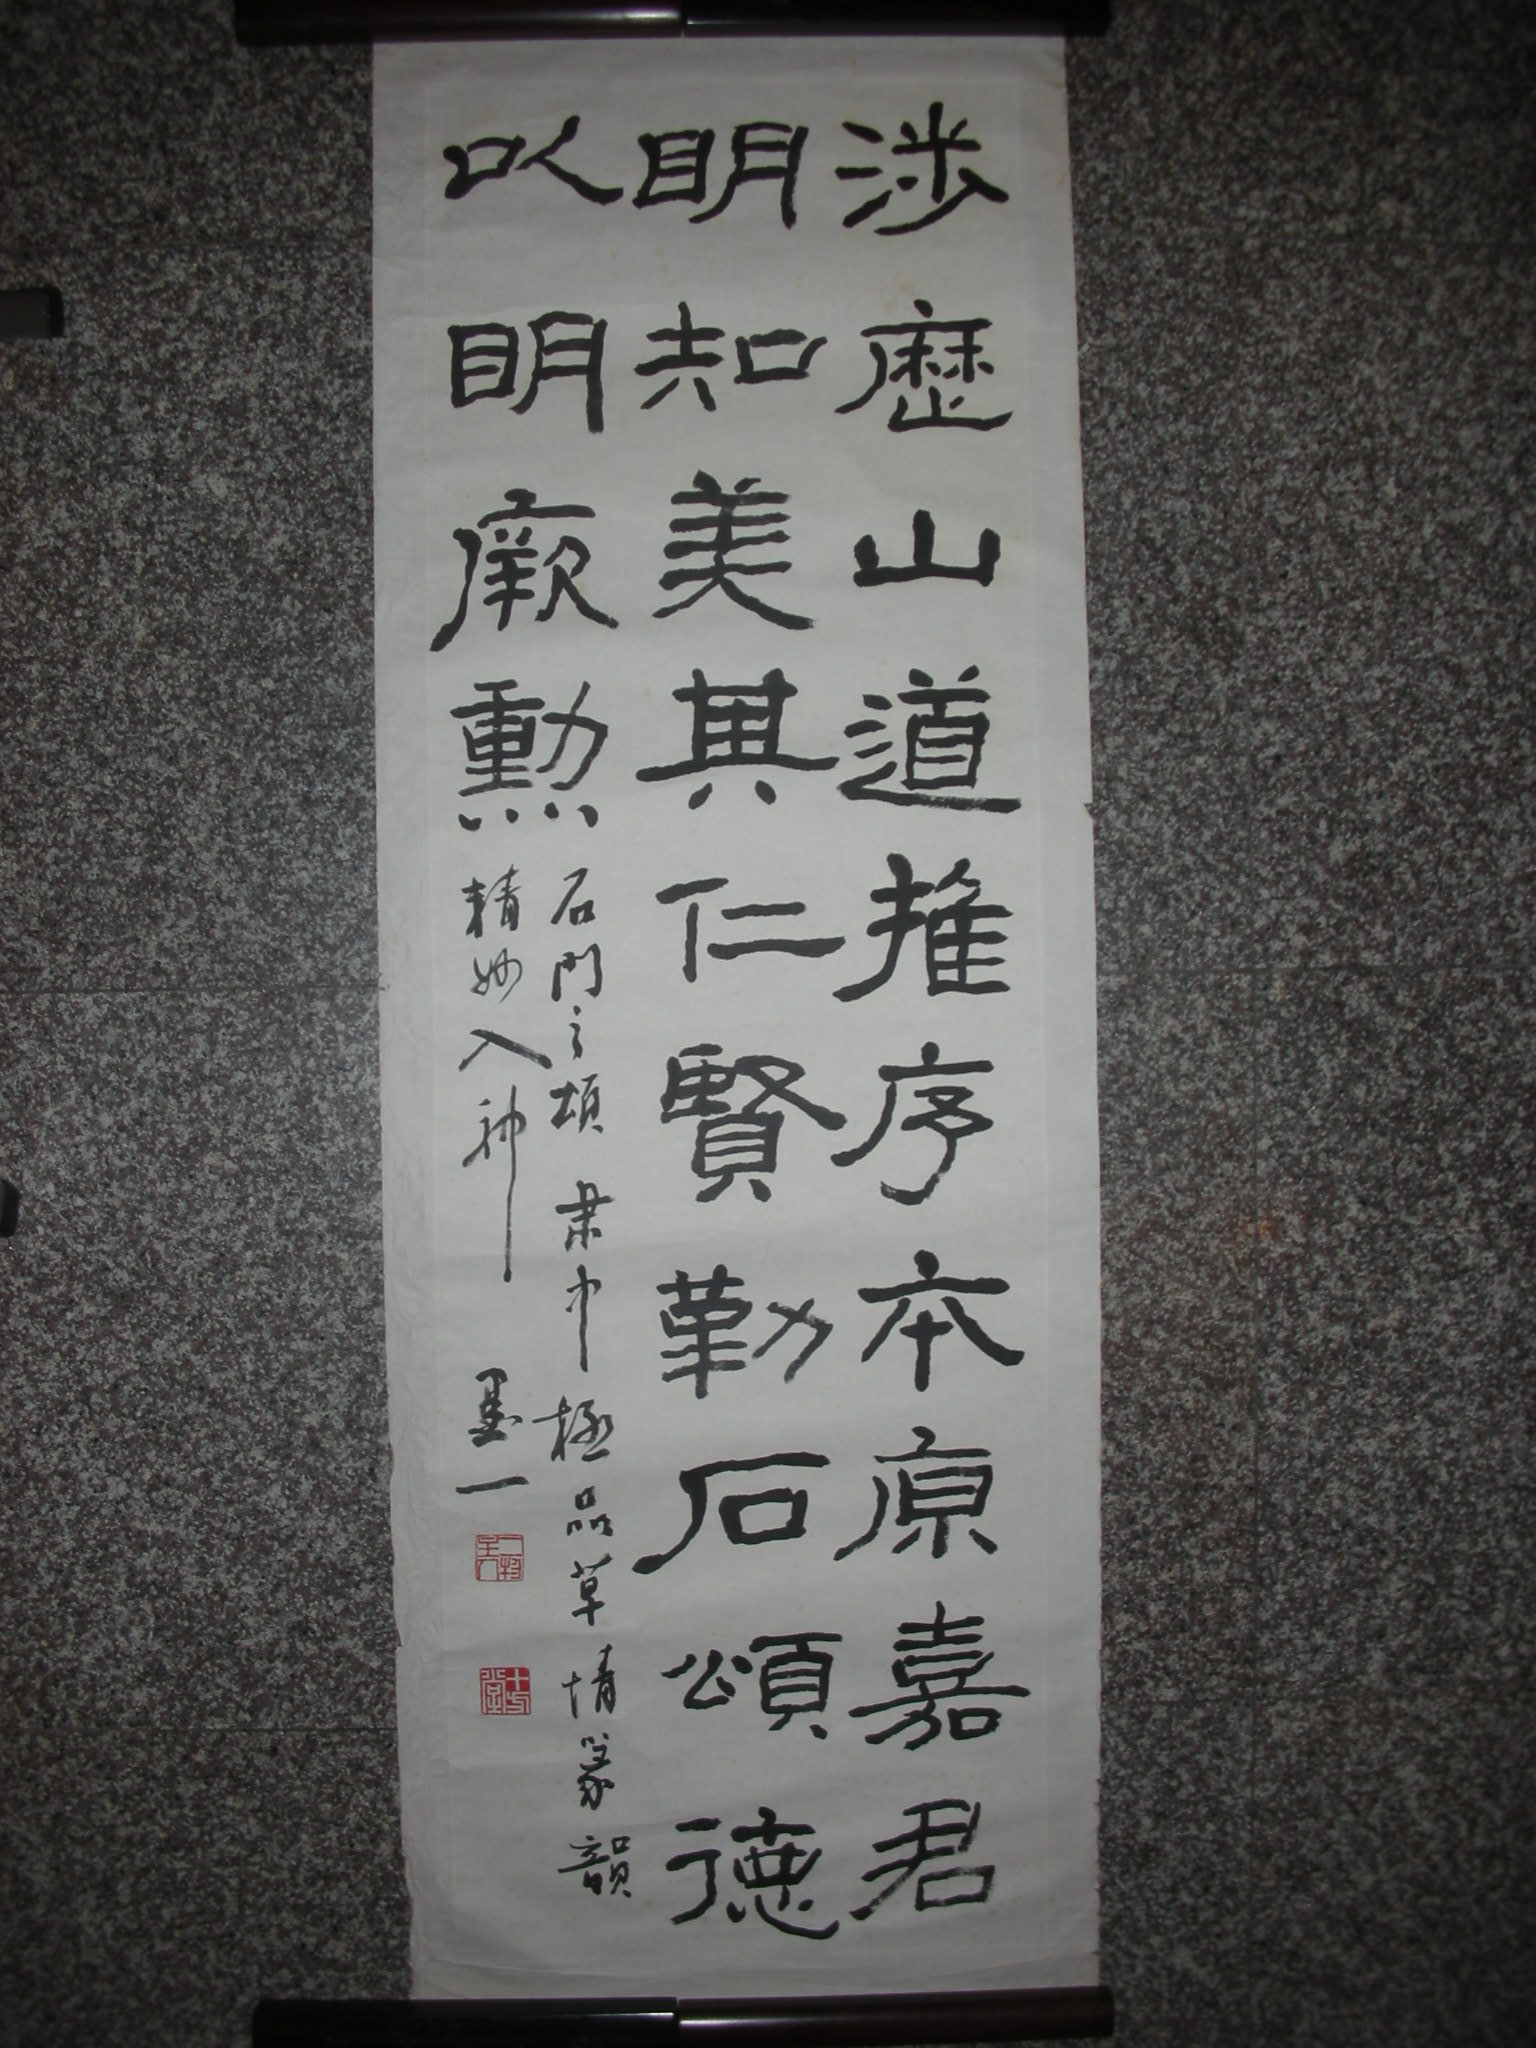 涉歷山道推序本原嘉君
明知美其仁賢勒石頌德
以明厥勲
石門之頌 隶中極品草情篆韻
精妙入神 墨一